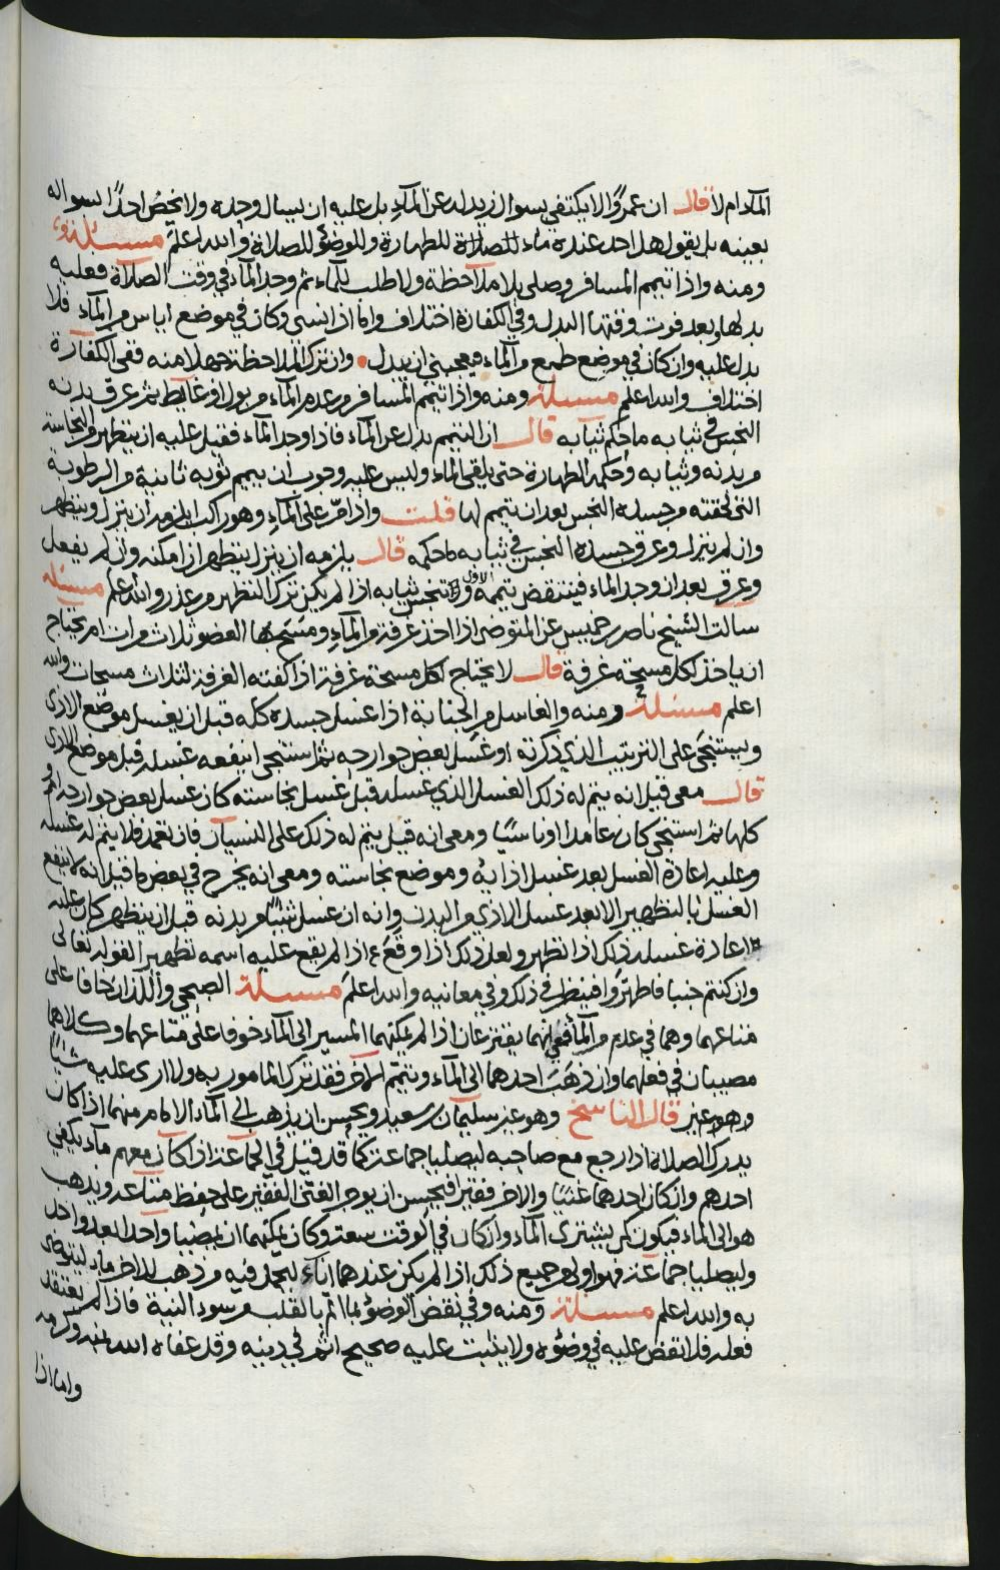 المآء ام لا قال ان عمروًا لا يكتفي بسوال زيد له عن المآءِ بل عليه ان يسال وحده ولا يخص احدًا بسواله
بعينه بل يقول هل احد عنده ماء للصلاة للطهارة وللوضؤ للصلاة والله اعلم مسئلة
ومنه واذا تيمم المسافر وصلى بلا ملاحظة ولا طلب للمآء ثم وجد المآء في وقت الصلاة فعليه
بدلها وبعد فوت وقتها البدل وفي الكفارة اختلاف واما ان نسي وكان في موضع اياس من المآء فلا
بدل عليه وان كان في موضع طمع من المآء فيعجبني ان يبدل وان ترك الملاحظة جهلا منه ففي الكفارة
اختلاف والله اعلم مسئلة ومنه واذا تيمم المسافر من عدم المآء من بول او غايط ثم عرق بدنه
النجس في ثيابه ما حكم ثيابه قال ان التيمم بدل عن المآء فاذا وجد المآء فقيل عليه ان يتطهر من النجاسة
من بدنه وثيابه وحكمه الطهارة حتى يلقى الماء وليس عليه وجوب ان ييمم ثوبه ثانية من الرطوبة
التي لحقته من جسده النجس بعد ان تيمم لها قلت واذا مر على المآءِ وهو راكب ايلزمه ان ينزل ويتطهر
وان لم ينزل وعرق جسده النجس في ثيابه ما حكمه قال يلزمه ان ينزل يتطهر ان امكنه وان لم يفعل
وعرق بعد ان وجد الماء فينتقض تيممه الاول وتنجس ثيابه اذا لم يكن ترك التطهر من عذر والله اعلم مسئلة
سالت الشيخ ناصر بن خميس عن المتوضي اذا اخذ غرفة من المآءِ ومسح بها العضو ثلاث مرات ام يحتاج
ان ياخذ لكل مسحة غرفة قال لا يحتاج لكل مسحة غرفة اذا كفته الغرفة لثلاث مسحات والله
اعلم مسئلة ومنه والغاسل من الجنابة اذا غسل جسده كله قبل ان يغسل موضع الاذى
ويستنجي على الترتيب الذي ذكرته او غسل بعض جوارحه ثم استنجى اينفعه غسله قبل موضع الاذى
قال معي قيل انه يتم له ذلك الغسل الذي غسله قبل غسل نجاسته كان غسل بعض جوارحه او
كلها ثم استنجى كان عامدا او ناسيًا ومعي انه قيل يتم له ذلك على النسيان فان تعمد فلا يتم له غسله
وعليه اعادة الغسل بعد غسل اذايه وموضع نجاسته ومعي انه يخرج في بعض ما قيل انه لا ينفع
الغسل بالتطهير الا بعد غسل الاذى من البدن وانه ان غسل شيئًا من بدنه قبل ان يتطهر كان عليه
اعادة غسله ذلك اذا تطهر ولعل ذلك اذا وقع اذا لم يقع عليه اسمه تطهير القوله تعالى
وان كنتم جنبا فاطهروا فينظر في ذلك وفي معانيه والله اعلم مسئلة الصبحي واللذان خافا على
متاعهما وهما في عدم من المآء فقيل انهما يفترعان اذا لم يمكنهما المسير الى المآء خوفا على متاعهما وكلاهما
مصيبان في فعلهما وان ذهب احدهما الى المآء وتيمم الآخر فقد ترك المامور به ولا ارى عليه شيئًا
وهو عن قال الناسخ وهو عن سليمان بن سعيد ويحسن ان يذهب الى المآء الامام منهما اذا كان
يدرك الصلاة اذا رجع مع صاحبه ليصليا جماعة كما قد قيل في الجماعة اذا كان معهم مآء يكفي
احدهم وان كان احدهما غنيًا والاخر فقيرا فيحسن ان يوجر الغني الفقير على حفظ متاعه ويذهب
هو الى الماء فيكون كمن يشتري المآء وان كان في الوقت سعة وكان يمكنهما ان يمضيا واحدا بعد واحد
وليصليا جماعة فهو اولى من جميع ذلك اذا لم يكن عندهما اناء ليحمل فيه من ذهب للاخر مآء ليتوضى
به والله اعلم مسئلة ومنه وفي نقض الوضؤ بما اثم بالقلب من سوء النية فاذا لم يعتقد
فعله فلا نقض عليه في وضؤه ولا يثبت عليه صحيح اثم في دينه وقد عفاه الله بمنه وكرمه
واما اذا